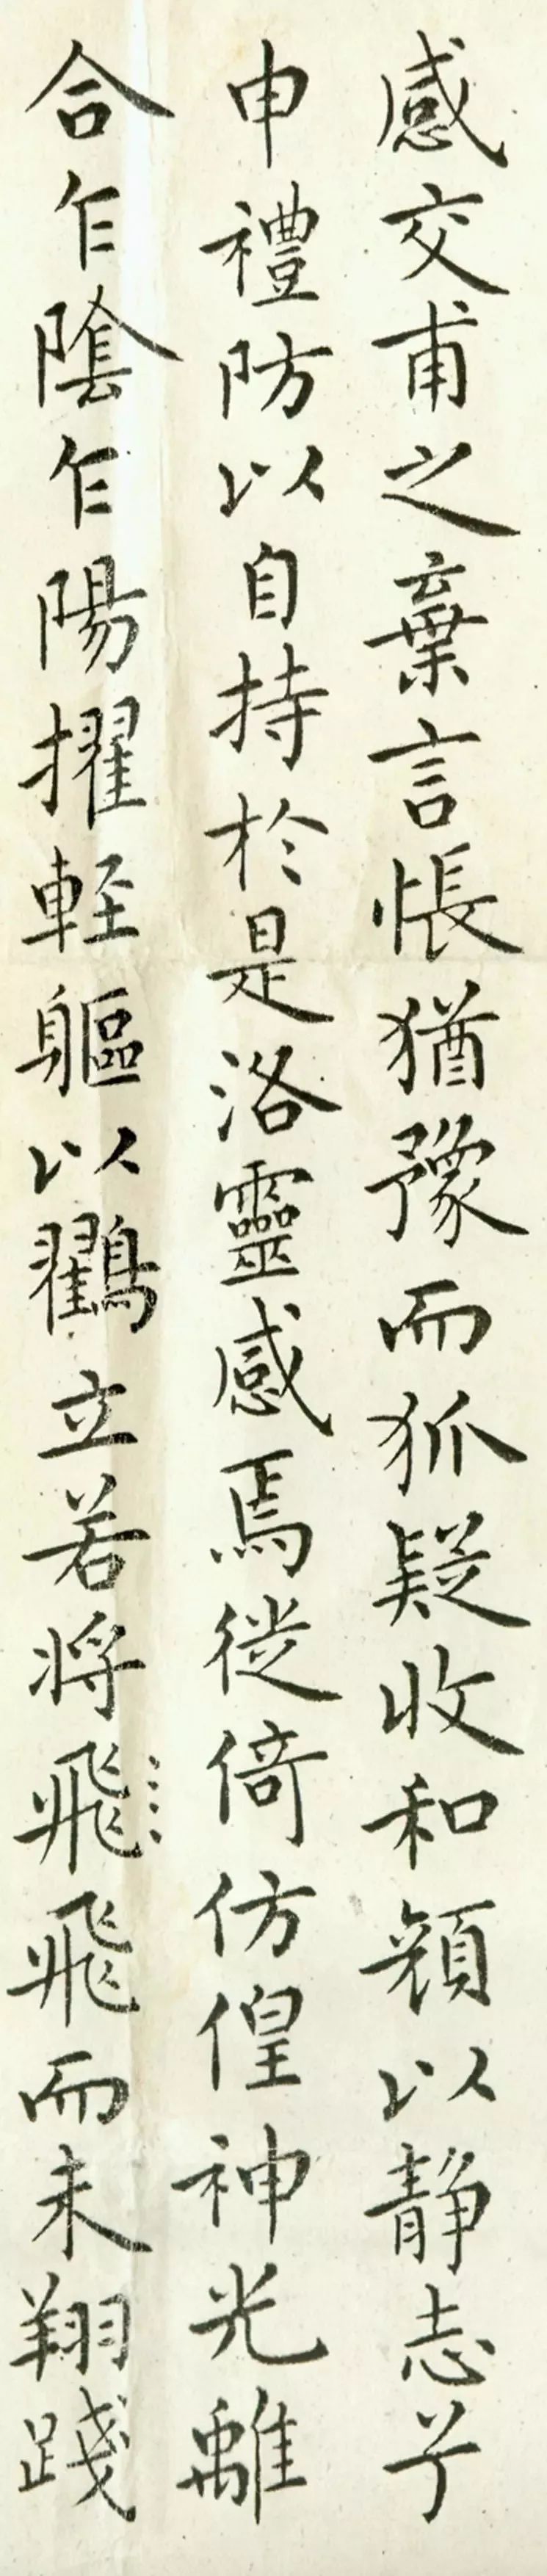 感交甫之棄言悵猶豫而狐疑收和顔以静志兮
申禮防以自持於是洛靈感焉徙倚仿偟神光離
合乍陰乍陽擢軽軀以鸖立若将飛飛而未翔踐